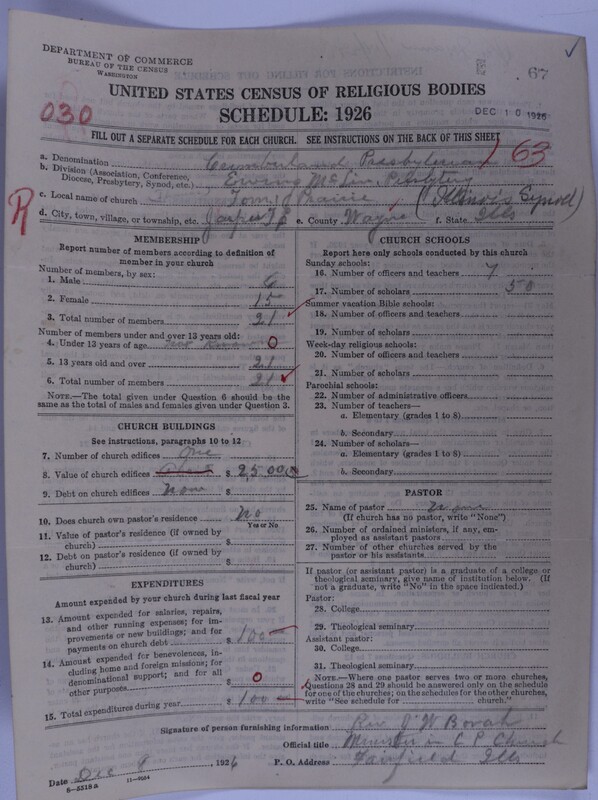 DEPARTMENT OF COMMERCE
BUREAU OF THE CENSUS
WASHINGTON
67
UNITED STATES CENSUS OF RELIGIOUS BODIES
SCHEDULE: 1926
DEC 10 1926
030
FILL OUT A SEPARATE SCHEDULE FOR EACH CHURCH. SEE INSTRUCTIONS ON THE BACK OF THIS SHEET
a. Denomination Cumberland Presbyterian 63
b. Division (Association, Conference, Diocese, Presbytery, Synod, etc.) Ewing McLin Presbytery
c. Local name of church Toms Prairie (Illinois Synod)
d. City, town, village, or township, etc. Jasper e. County Wayne f. State Ills
R
MEMBERSHIP
Report number of members according to definition of
member in your church
Number of members, by sex:
1. Male 6
2. Female 15
3. Total number of members 21
Number of members under and over 13 years old:
4. Under 13 years of age 0
5. 13 years old and over 21
6. Total number of members 21
NOTE.—The total given under Question 6 should be
the same as the total of males and females given under Question 3.
CHURCH BUILDINGS
See instructions, paragraphs 10 to 12
7. Number of church edifices One
8. Value of church edifices $ 2,500
9. Debt on church edifices None $
10. Does church own pastor's residence No
Yes or No
11. Value of pastor's residence (if owned by
church) $
12. Debt on pastor's residence (if owned by
church) $
EXPENDITURES
Amount expended by your church during last fiscal year
13. Amount expended for salaries, repairs,
and other running expenses; for im-
provements or new buildings; and for
payments on church debt $ 100
14. Amount expended for benevolences, in-
cluding home and foreign missions; for
denominational support; and for all
other purposes $ 0
15. Total expenditures during year $ 100
CHURCH SCHOOLS
Report here only schools conducted by this church
Sunday schools:
16. Number of officers and teachers 7
17. Number of scholars 50
Summer vacation Bible schools:
18. Number of officers and teachers
19. Number of scholars
Week-day religious schools:
20. Number of officers and teachers
21. Number of scholars
Parochial schools:
22. Number of administrative officers
23. Number of teachers—
a. Elementary (grades 1 to 8)
b. Secondary
24. Number of scholars—
a. Elementary (grades 1 to 8)
b. Secondary
PASTOR
25. Name of pastor None
(If church has no pastor, write "None")
26. Number of ordained ministers, if any, em-
ployed as assistant pastors
27. Number of other churches served by the
pastor or his assistants
If pastor (or assistant pastor) is a graduate of a college or
theological seminary, give name of institution below. (If
not a graduate, write "No" in the space indicated.)
Pastor:
28. College
29. Theological seminary
Assistant pastor:
30. College
31. Theological seminary
NOTE.—Where one pastor serves two or more churches,
Questions 28 and 29 should be answered only on the schedule
for one of the churches; on the schedules for the other churches,
write "See schedule for church."
Signature of person furnishing information Rev J W Borah
Official title Minister in C P Church
Date Dec 8, 1926 P. O. Address Fairfield Ills
8-5318a 11-9164